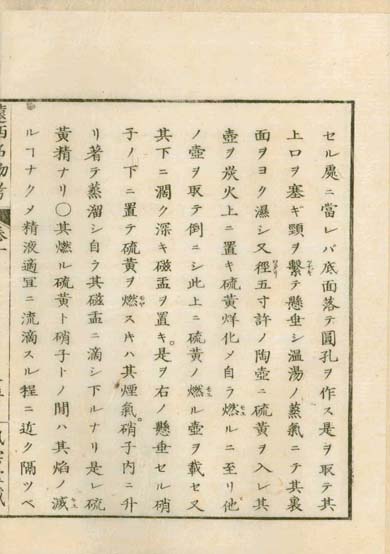 セル處ニ當レバ底面落テ圓孔ヲ作ス是ヲ取テ其
上口ヲ塞ギ頸ヲ繫テ懸垂シ溫湯ノ蒸氣ニテ其裏
面ヲヨク濕シ又徑五寸許ノ陶壺ニ硫黄ヲ入レ其
壺ヲ炭火上ニ置キ硫黄烊化メ自ラ燃ルニ至リ他
ノ壺ヲ取テ倒ニシ此上ニ硫黄ノ燃ル壺ヲ載セ又
其下ニ濶ク深キ磁盂ヲ置キ。是ヲ右ノ懸垂セル硝
子ノ下ニ置テ硫黄ヲ燃スキハ其煙氣。硝子内ニ升
リ著テ蒸溜シ自ラ其磁盂ニ滴シ下ルナリ是レ硫
黄精ナリ〇其燃ル硫黄ト硝子トノ間ハ其焰ノ滅
ルヿナクメ精液適宜ニ流滴スル程ニ近ク隔ツベ
遠西名物考 卷一